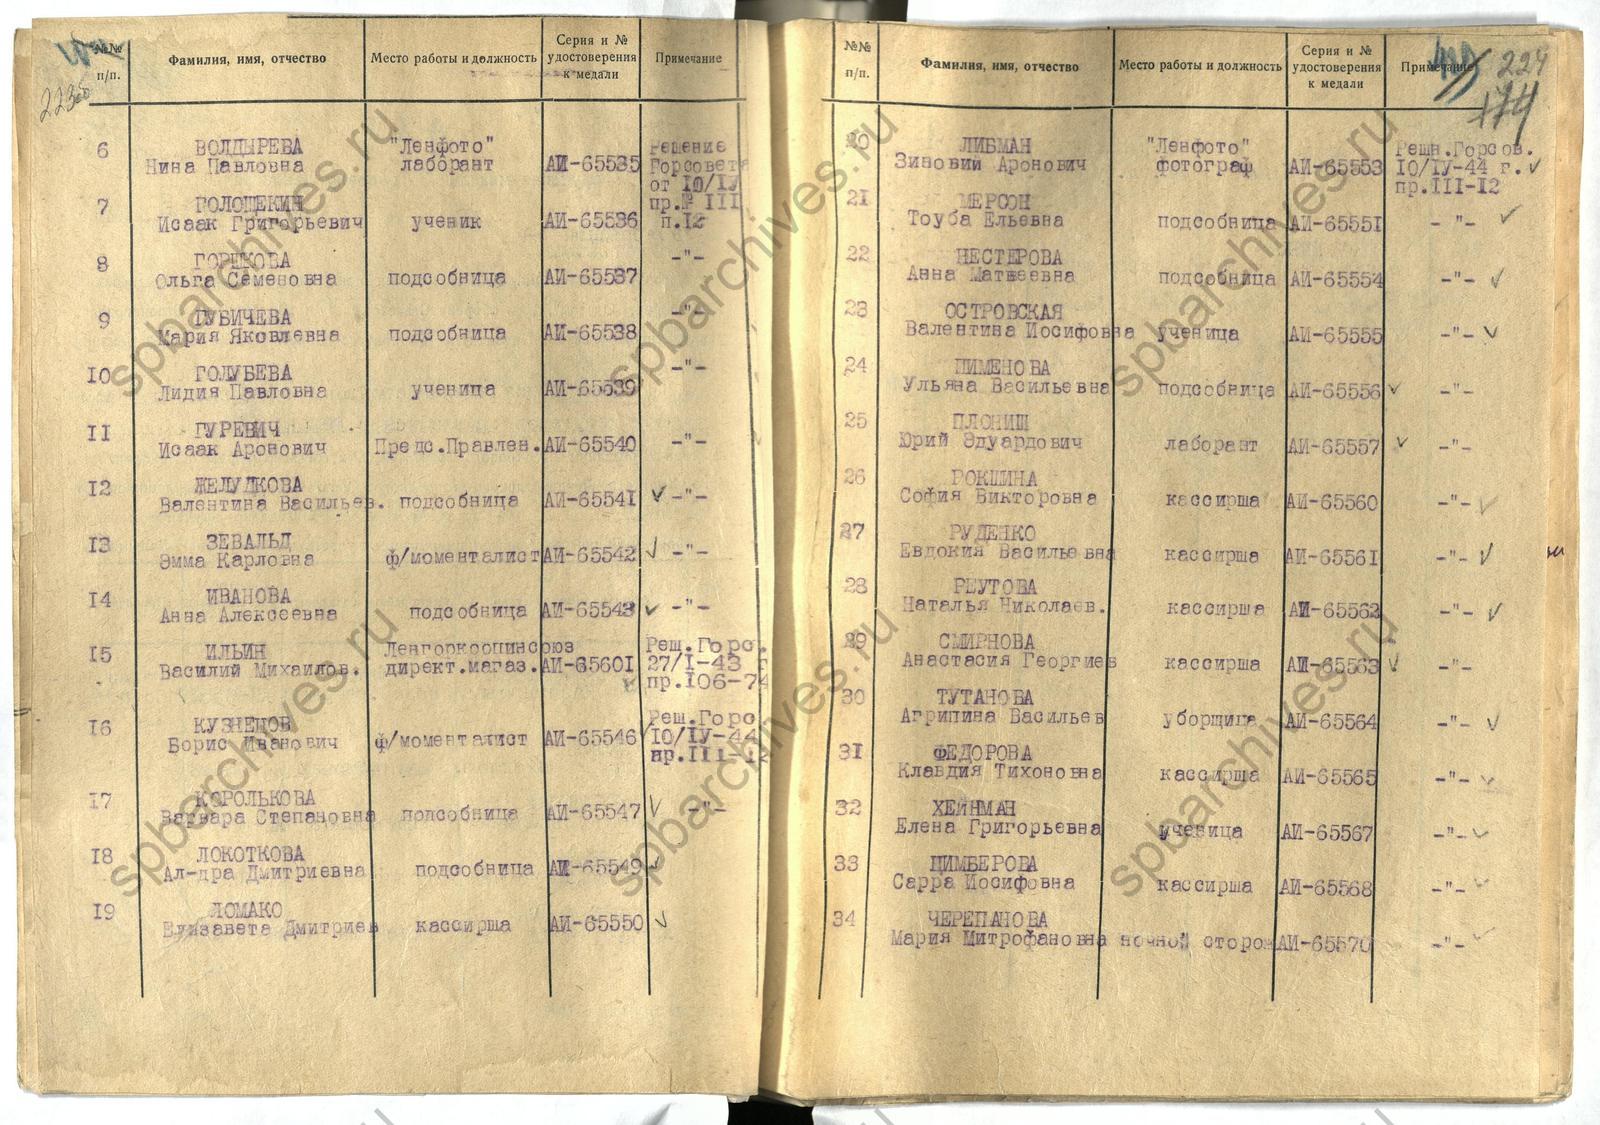 №№ п/п.
Фамилия, имя, отчество
Место работы и должность
Серия и № удостоверения к медали
Примечание
223об
6 ВОЛДЫРЕВА "Ленфото" Решение
Нина Павловна лаборант АИ-65535 Горсовета
от 10/IУ
7 ГОЛОЩЕКИН пр.№ III
Исаак Григорьевич ученик АИ-65536 п.12
8 ГОРШКОВА -"-
Ольга Семеновна подсобница АИ-65537
9 ГУБИЧЕВА -"-
Мария Яковлевна подсобница АИ-65538
10 ГОЛУБЕВА -"-
Лидия Павловна ученица АИ-65539
11 ГУРЕВИЧ
Исаак Аронович Предс.Правлен. АИ-65540 -"-
12 ЖЕЛУДКОВА
Валентина Васильев. подсобница АИ-65541 -"-
13 ЗЕВАЛЬД
Эмма Карловна ф/моменталист АИ-65542 -"-
14 ИВАНОВА
Анна Алексеевна подсобница АИ-65543 -"-
15 ИЛЬИН Ленгоркоопинсоюз Реш.Горс.
Василий Михайлов. директ.магаз. АИ-65601 27/I-43 г
пр.106-74
16 КУЗНЕЦОВ Реш.Горс
Борис Иванович ф/моменталист АИ-65546 10/IУ-44
пр.III-12
17 КОРОЛЬКОВА
Варвара Степановна подсобница АИ-65547 -"-
18 ЛОКОТКОВА
Ал-дра Дмитриевна подсобница АИ-65549
19 ЛОМАКО
Елизавета Дмитриев кассирша АИ-65550
№№ п/п.
Фамилия, имя, отчество
Место работы и должность
Серия и № удостоверения к медали
Примечание
224
174
20 ЛИБМАН "Ленфото" Решн.Горсов.
Зиновий Аронович фотограф АИ-65553 10/IУ-44 г.
пр.III-12
21 МЕРСОН
Тоуба Ельевна подсобница АИ-65551 -"-
22 НЕСТЕРОВА
Анна Матвеевна подсобница АИ-65554 -"-
23 ОСТРОВСКАЯ
Валентина Иосифовна ученица АИ-65555 -"-
24 ПИМЕНОВА
Ульяна Васильевна подсобница АИ-65556 -"-
25 ПЛОНИШ
Юрий Эдуардович лаборант АИ-65557 -"-
26 РОКШИНА
София Викторовна кассирша АИ-65560 -"-
27 РУДЕНКО
Евдокия Васильевна кассирша АИ-65561 -"-
28 РЕУТОВА
Наталья Николаев. кассирша АИ-65562 -"-
29 СМИРНОВА
Анастасия Георгиев кассирша АИ-65563 -"-
30 ТУТАНОВА
Агрипина Васильев уборщица АИ-65564 -"-
31 ФЕДОРОВА
Клавдия Тихоновна кассирша АИ-65565 -"-
32 ХЕЙНМАН
Елена Григорьевна ученица АИ-65567 -"-
33 ЦИМБЕРОВА
Сарра Иосифовна кассирша АИ-65568 -"-
34 ЧЕРЕПАНОВА
Мария Митрофановна ночной сторож АИ-65570 -"-
spbarchives.ru
spbarchives.ru
spbarchives.ru
spbarchives.ru
spbarchives.ru
spbarchives.ru